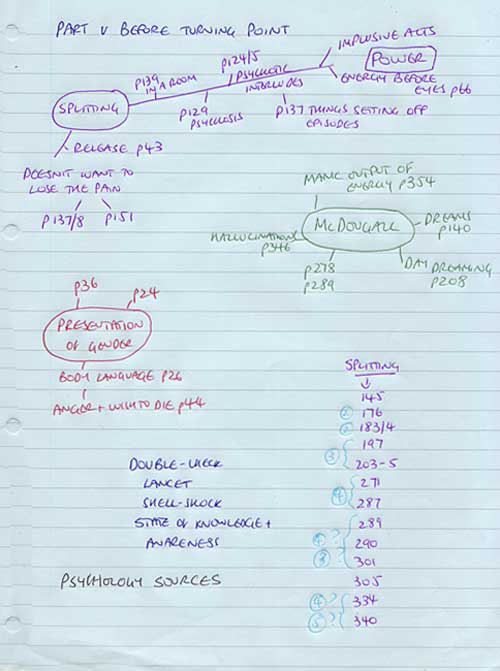 PART V BEFORE TURNING POINT
IMPULSIVE ACTS
p124/5
POWER
p139
IN A ROOM
PSYCHOTIC
INTERLUDES
ENERGY BEFORE
EYES p66
SPLITTING
p129
PSYCHOSIS
p137 THINGS SETTING OFF
EPISODES
RELEASE p43
DOESN'T WANT TO
LOSE THE PAIN
p137/8
p151
MANIC OUTPUT OF
ENERGY p354
McDOUGALL
DREAMS
p140
HALLUCINATIONS
p346
p278
p289
DAY DREAMING
p208
p36
p24
PRESENTATION
OF GENDER
BODY LANGUAGE p26
ANGER + WISH TO DIE p44
SPLITTING
145
② 176
② 183/4
197
③
203-5
271
④
287
289
④? 290
③? 301
305
④? 334
⑤? 340
DOUBLE-CHECK
LANCET
SHELL-SHOCK
STATE OF KNOWLEDGE +
AWARENESS
PSYCHOLOGY SOURCES